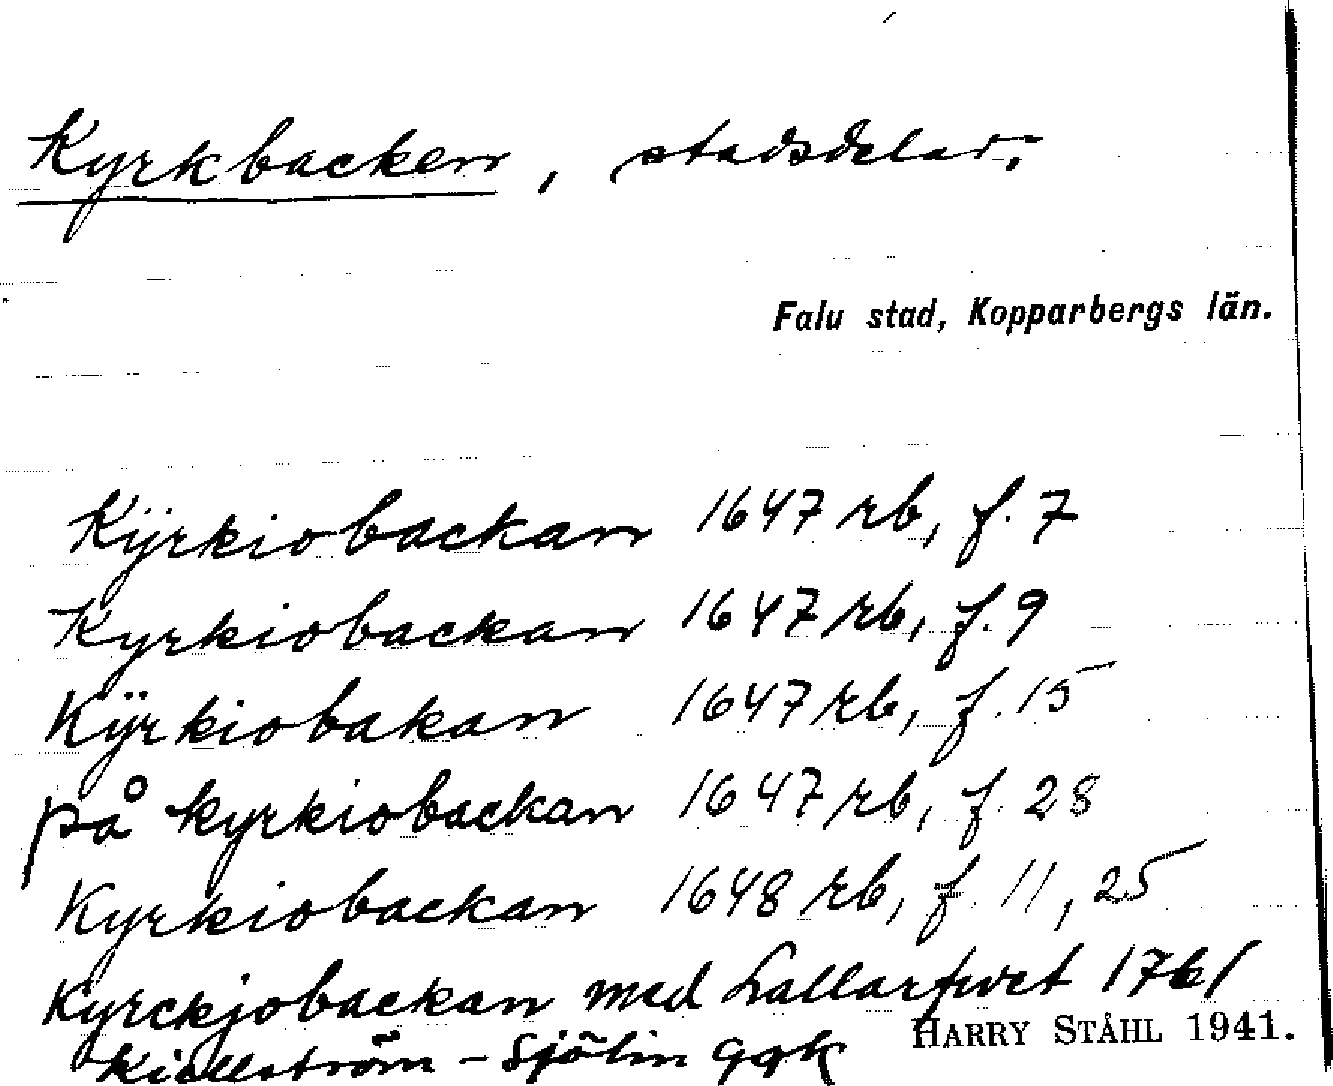 Kyrkbacken, stadsdelar.
Falu stad, Kopparbergs län.
Kÿrkiobackan 1647 rb, f. 7
Kyrkiobackan 1647 rb, f. 9
Kÿrkiobakan 1647 rb, f. 15
på kyrkiobackan 1647 rb, f. 28
Kyrkiobackan 1648 rb, f. 11, 25
Kyrckjobackan med 1761
HARRY STÅHL 1941.
Kiellström - Sjölin ggk